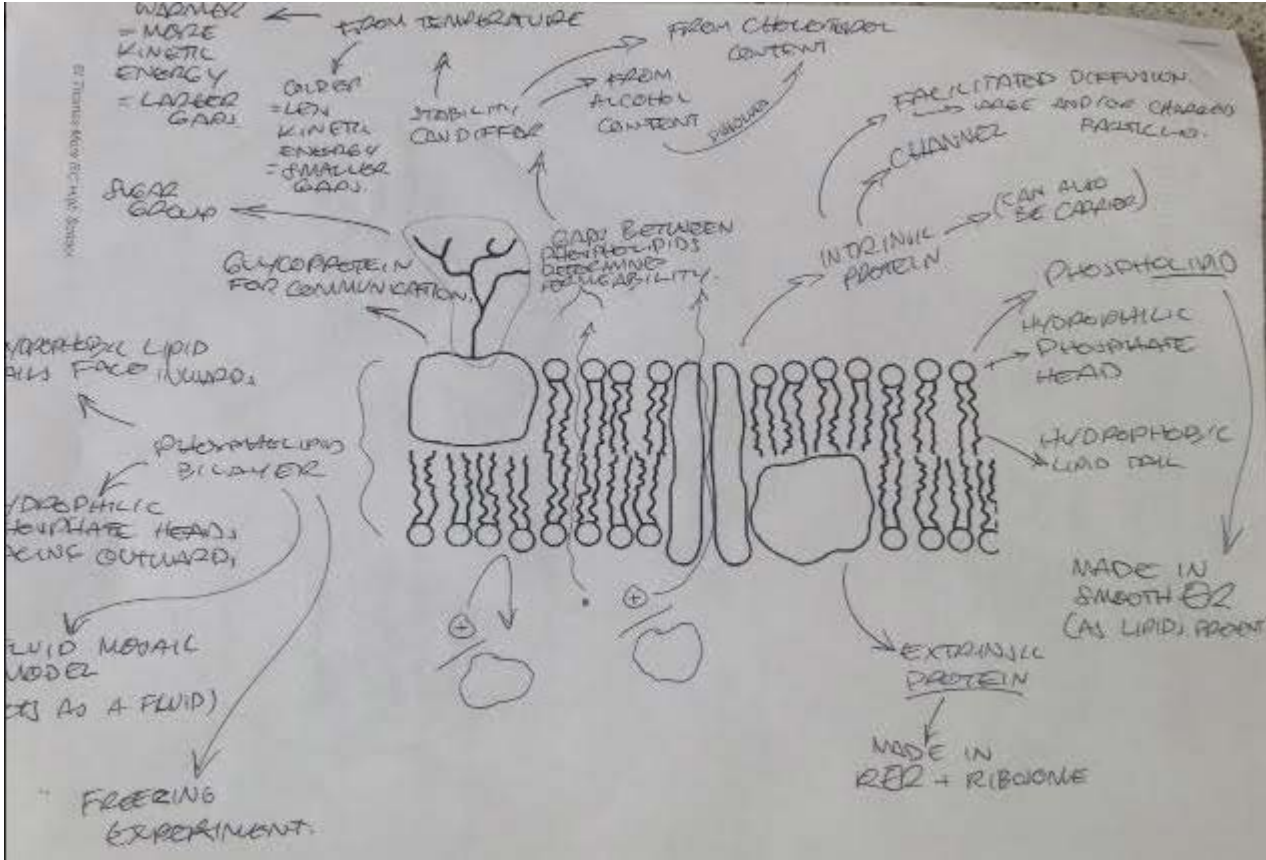 WARMER
= MORE
KINETIC
ENERGY
= LARGER
GAPS
FROM TEMPERATURE
COLDER
= LESS
KINETIC
ENERGY
= SMALLER
GAPS.
STABILITY
CAN DIFFER
FROM CHOLESTEROL
CONTENT
FROM
ALCOHOL
CONTENT
DISSOLVES
FACILITATED DIFFUSION.
LARGE AND/OR CHARGED
PARTICLES.
CHANNEL
(CAN ALSO
BE CARRIER)
INTRINSIC
PROTEIN
SUGAR
GROUP
GLYCOPROTEIN
FOR COMMUNICATION.
GAPS BETWEEN
PHOSPHOLIPIDS
DETERMINES
PERMEABILITY.
PHOSPHOLIPID
HYDROPHILIC
PHOSPHATE
HEAD
HYDROPHOBIC
LIPID TAIL
MADE IN
SMOOTH ER
(AS LIPIDS PRESENT
YDROPHOBIC LIPID
AILS FACE INWARDS
PHOSPHOLIPID
BILAYER
YDROPHILIC
HOSPHATE HEADS
ACING OUTWARDS
FLUID MOSAIC
MODEL
(ACTS AS A FLUID)
FREEZING
EXPERIMENT.
EXTRINSIC
PROTEIN
MADE IN
RER + RIBOSOME
+
+